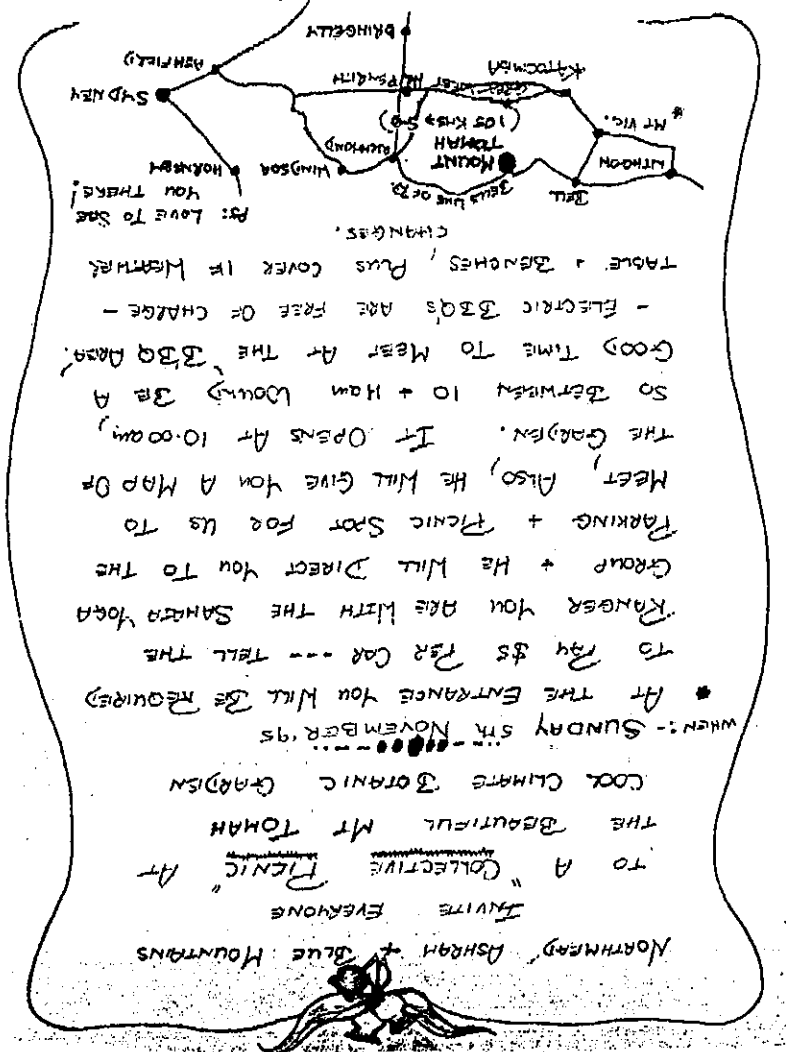 NORTHMEAD ASHRAM + BLUE MOUNTAINS
INVITE EVERYONE
TO A "COLLECTIVE PICNIC" AT
THE BEAUTIFUL MT TOMAH
COOL CLIMATE BOTANIC GARDEN
WHEN:- SUNDAY 5TH NOVEMBER '95
* AT THE ENTRANCE YOU WILL BE REQUIRED
TO PAY $5 PER CAR --- TELL THE
RANGER YOU ARE WITH THE SAHAJA YOGA
GROUP + HE WILL DIRECT YOU TO THE
PARKING + PICNIC SPOT FOR US TO
MEET, ALSO, HE WILL GIVE YOU A MAP OF
THE GARDEN. IT OPENS AT 10.00am,
SO BETWEEN 10 + 11am WOULD BE A
GOOD TIME TO MEET AT THE 'BBQ AREA'.
- ELECTRIC BBQ'S ARE FREE OF CHARGE -
TABLE + BENCHES, PLUS COVER IF WEATHER
CHANGES.
PS: LOVE TO SEE
YOU THERE!
LITHGOW
BELL
BELLS LINE OF RD.
MOUNT
TOMAH
(105 KMS)
RICHMOND
WINDSOR
HORNSBY
* MT VIC.
KATOOMBA
GREAT WEST
PENRITH
SYDNEY
ASHFIELD
BRINGELLY